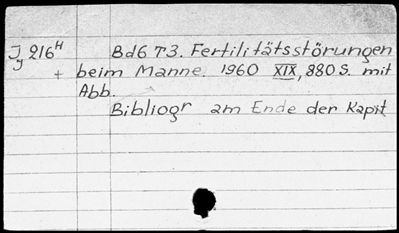 J 216H Bd6 T3. Fertilitätsstörungen
J + beim Manne. 1960 XIX, 880 S. mit
Abb.
Bibliogr am Ende der Kapit